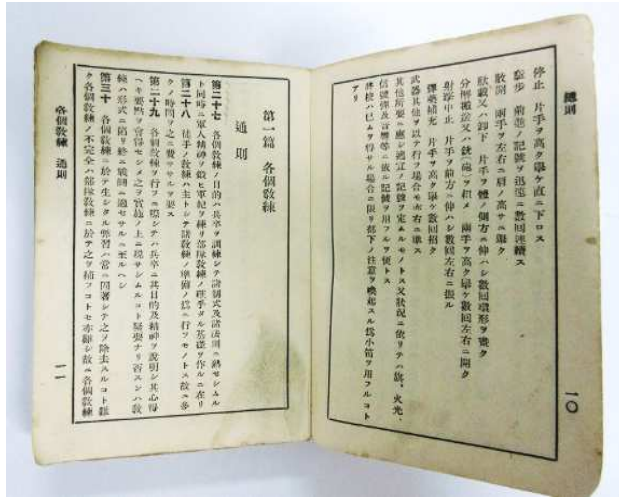 通則
一〇
停止 片手ヲ高ク擧ケ直ニ下ロス
駈步 前進ノ記號ヲ迅速ニ數回連續ス
散開 兩手ヲ左右ニ肩ノ高サニ擧ク
駄載又ハ卸下 片手ヲ體ノ側方ニ伸ハシ數回環形ヲ畫ク
分解搬送又ハ銃(砲)ヲ組メ 兩手ヲ高ク擧ケ數回左右ニ開ク
射擊中止 片手ヲ前方ニ伸ハシ數回左右ニ振ル
彈藥補充 片手ヲ高ク擧ケ數回招ク
武器其他ヲ以テ行フ場合モ亦右ニ準ス
其他所要ニ應シ適宜ノ記號ヲ定ムルモノトス又狀況ニ依リテハ旗、火光、
信號彈及音響等ニ依ル記號ヲ用フルヲ便トス
將校ハ已ムヲ得サル場合ニ限リ部下ノ注意ヲ喚起スル爲小笛ヲ用フルコト
アリ
第一篇 各個敎練
通則
第二十七 各個敎練ノ目的ハ兵卒ヲ訓練シテ諸制式及諸法則ニ熟セシムル
ト同時ニ軍人精神ヲ鍛ヒ軍紀ヲ練リ部隊敎練ノ確乎タル基礎ヲ作ルニ在リ
第二十八 徒手ノ敎練ハ主トシテ諸敎練ノ準備ノ爲ニ行フモノトス故ニ多
クノ時間ヲ之ニ費ササルヲ要ス
第二十九 各個敎練ヲ行フニ際シテハ兵卒ニ其目的及精神ヲ說明シ其心得
ヘキ要點ヲ會得セシメ之ヲ實施ノ上ニ現サシムルコト緊要ナリ否スンハ敎
練ハ形式ニ陷リ終ニ戰鬪ニ適セサルニ至ルヘシ
第三十 各個敎練ニ於テ生シタル弊習ハ常ニ固著シテ之ヲ除去スルコト難
ク各個敎練ノ不完全ハ部隊敎練ニ於テ之ヲ補フコトモ亦難シ故ニ各個敎練
各個敎練 通則
一一